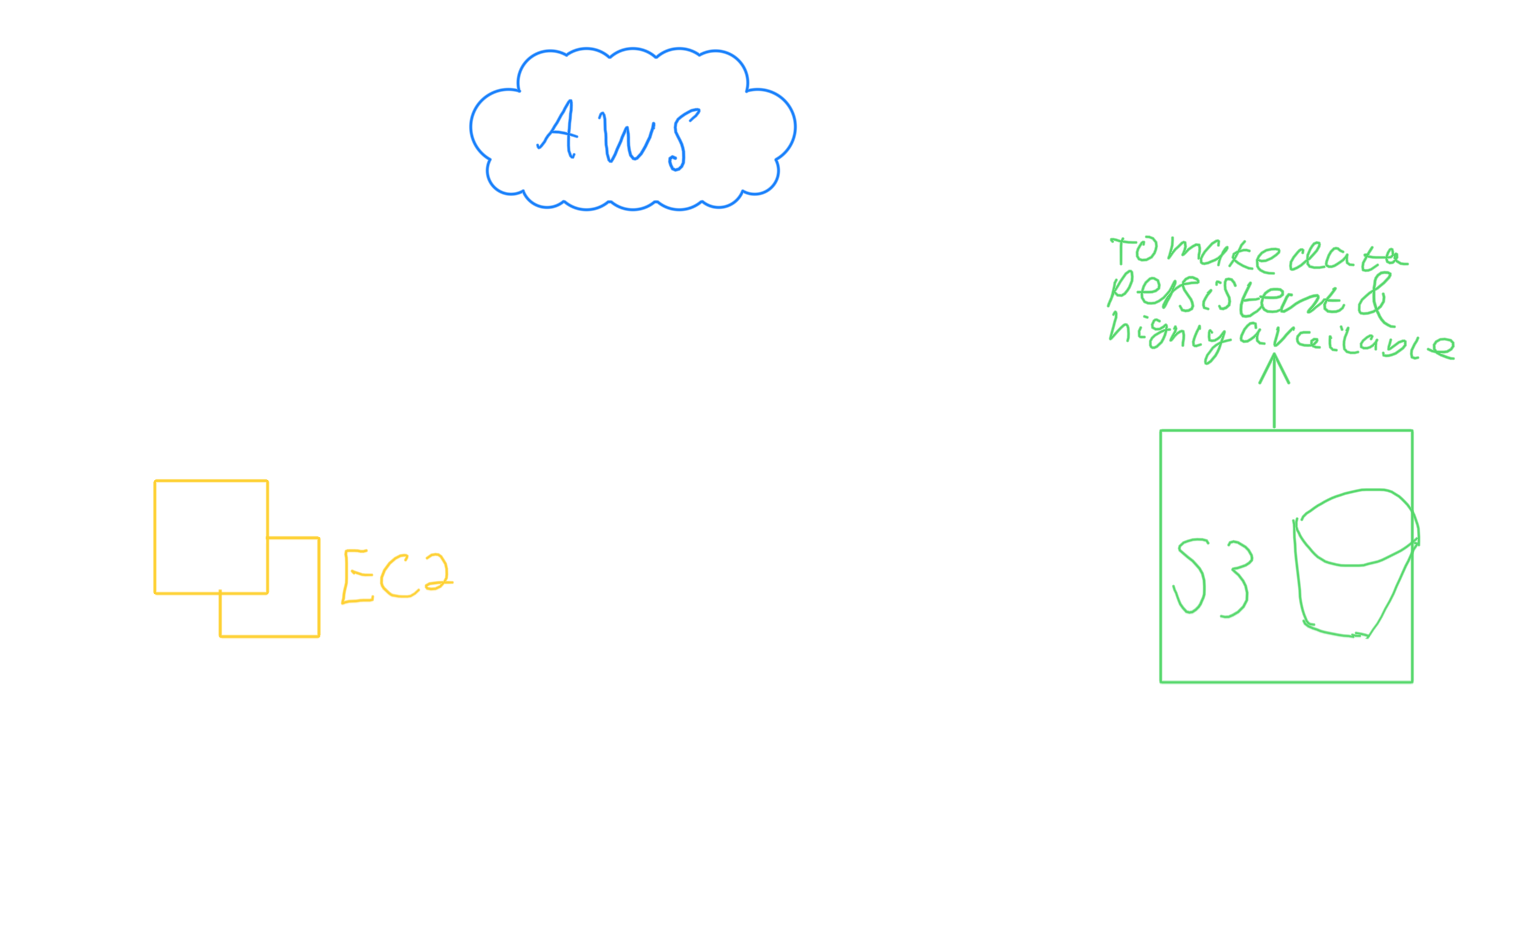 AWS
To make data
persistent &
highly available
EC2
S3